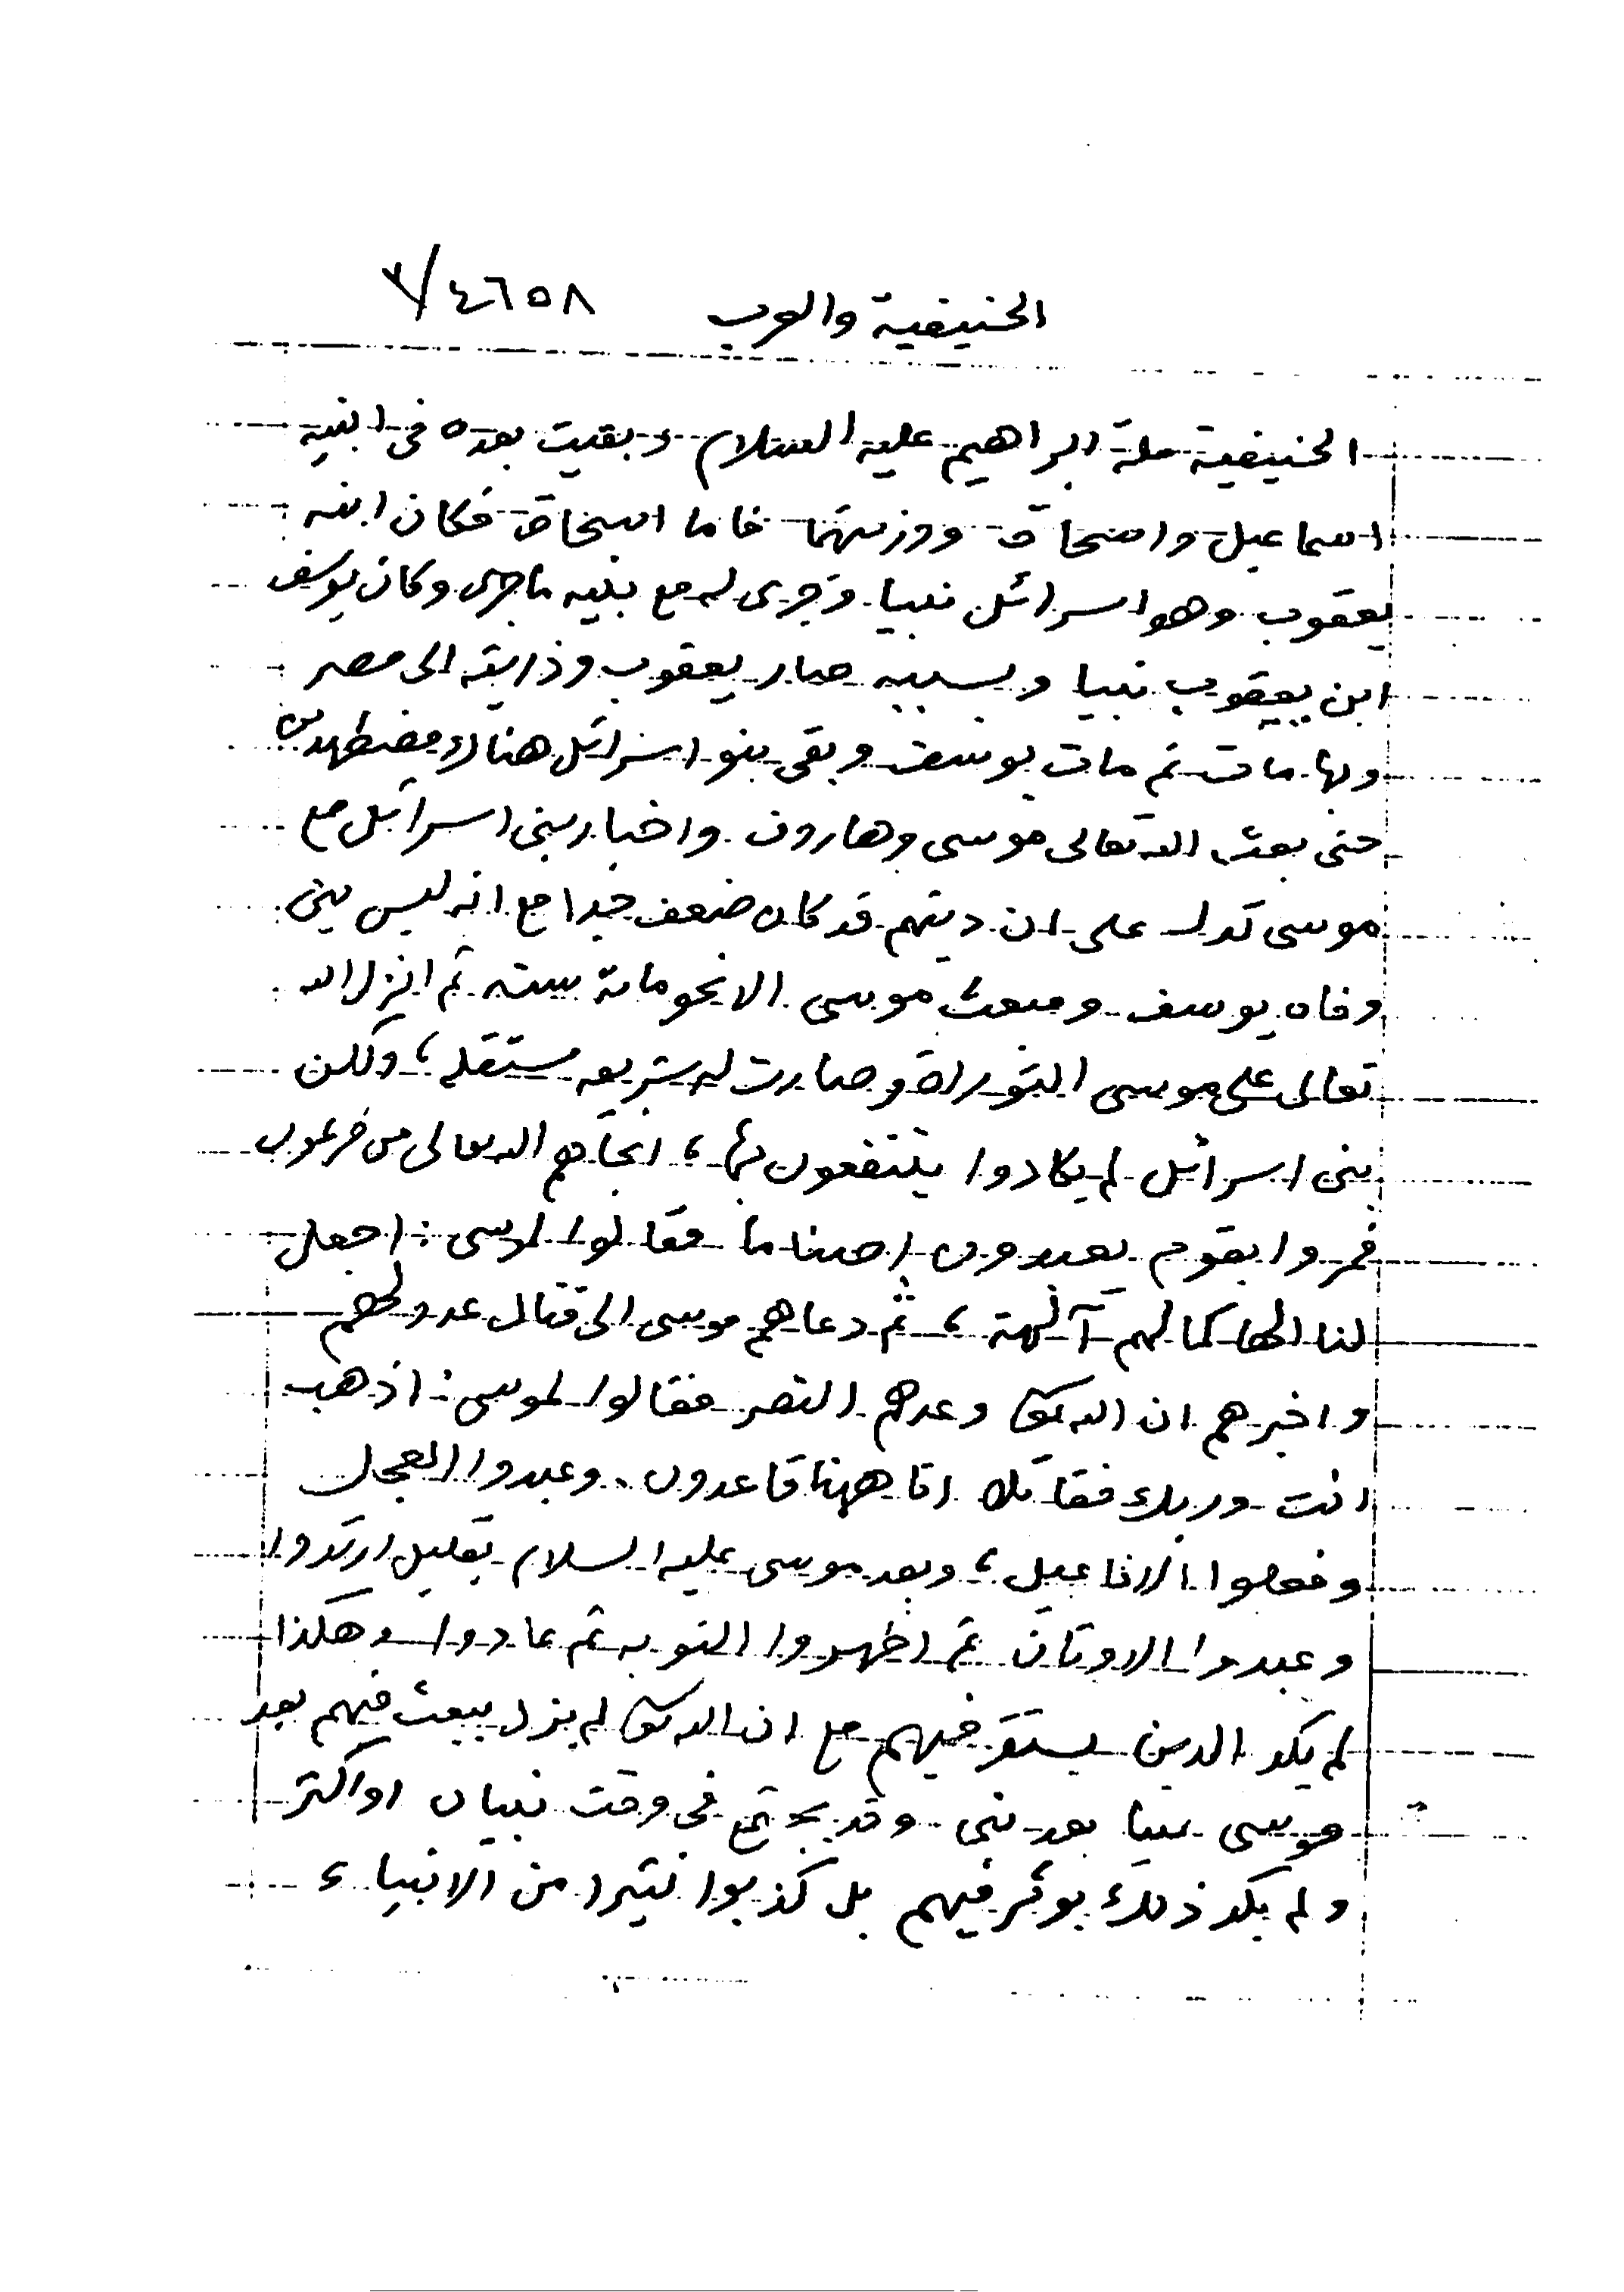 الحنيفية والعرب ٤٦٥٨/٢
الحنيفية ملة ابراهيم عليه السلام وبقيت بعده فى ابنيه
اسماعيل واسحاق وورثتهما فاما اسحاق فكان ابنه
يعقوب وهو اسرائل نبيا وجرى له مع بنيه ماجرى وكان يوسف
ابن يعقوب نبيا وبسببه صار يعقوب وذريته الى مصر
وبها مات ثم مات يوسف وبقى بنو اسرائل هناك مضطهدين
حتى بعث الله تعالى موسى وهارون واخبار بنى اسرائل مع
موسى تدل على ان دينهم قد كان ضعف جدا مع انه ليس بين
وفاه يوسف ومبعث موسى الا نحو مائة سنه ثم انزل الله
تعالى على موسى التوراة وصارت له شريعه مستقله ، ولكن
بنى اسرائل لم يكادوا ينتفعون بها ، انجاهم الله تعالى من فرعون
فمروا بقوم يعبدون اصناما فقالوا لموسى : اجعل
لنا الها كما لهم آلهة ، ثم دعاهم موسى الى قتال عدو لهم
واخبرهم ان الله تعالى وعدهم النصر فقالوا لموسى : اذهب
انت وربك فقاتلا انا ههنا قاعدون . وعبدوا العجل
وفعلوا الافاعيل ، وبعد موسى عليه السلام بقليل ارتدوا
وعبدوا الاوثان ثم اظهروا التوبه ثم عادوا وهكذا
لم يكد الدين يستقر فيهم مع ان الله تعالى لم يزل يبعث فيهم بعد
موسى نبيا بعد نبى وقد يجتمع فى وقت نبيان او اكثر
ولم يكد ذلك يوثر فيهم بل كذبوا كثيرا من الانبياء